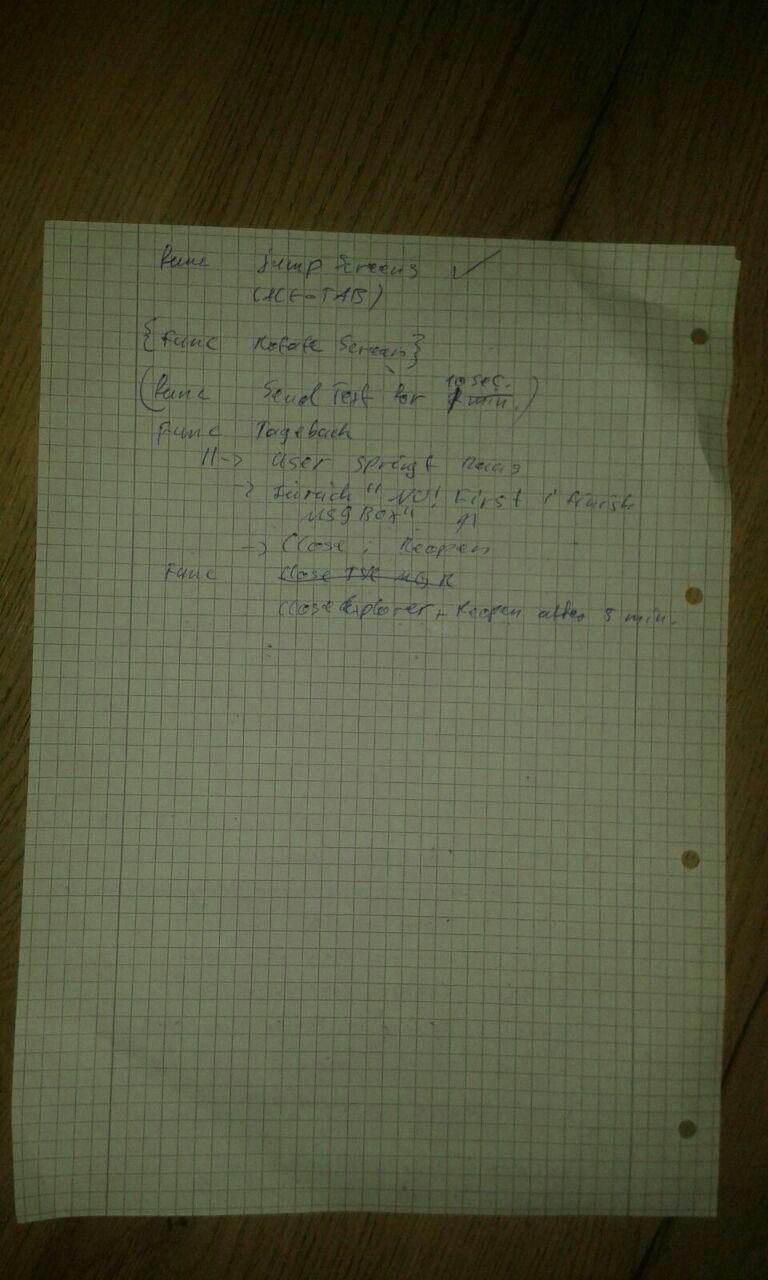 Func Jump Screens ✓
(ALT-TAB)
{Func Rotate Screen}
(Func Send Text for 10 sec. 1 min.)
Func Tagebuch
11-> User springt raus
-> Zurück "NO! First I finish
MSgBox"
-> Close; Reopen
Func Close
Close Explorer + Reopen after 5 min.